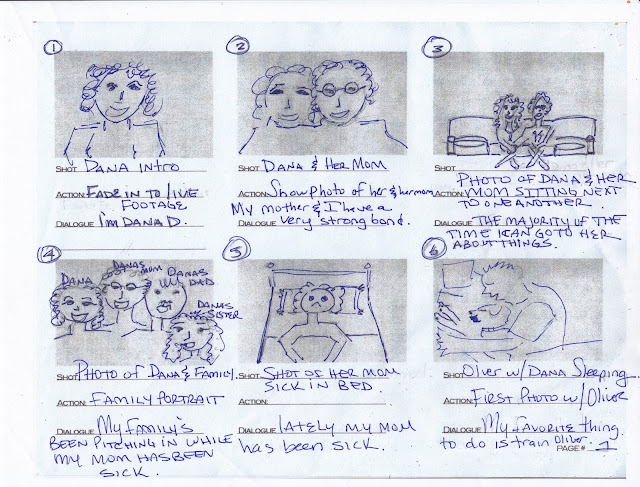 1
SHOT DANA INTRO
ACTION: FADE IN TO LIVE
FOOTAGE
DIALOGUE I'm DANA D.
2
SHOT DANA & HER MOM
ACTION: Show photo of her & her mom
My mother & I have a
DIALOGUE very strong bond.
3
SHOT PHOTO OF DANA & HER
ACTION: MOM SITTING NEXT
TO ONE ANOTHER.
DIALOGUE THE MAJORITY OF THE
TIME I CAN GO TO HER
ABOUT THINGS.
4
DANA
DANAS
MOM
DANAS
DAD
DANAS
SISTER
SHOT PHOTO OF DANA & FAMILY.
ACTION: FAMILY PORTRAIT
DIALOGUE My FAMILY'S
BEEN PITCHING IN WHILE
MY MOM HAS BEEN
SICK.
5
SHOT SHOT OF HER MOM
SICK IN BED
ACTION:
DIALOGUE lATELY MY MOM
has been SICK.
6
SHOT Oliver w/ DANA Sleeping
ACTION: FIRST PHOTO w/ Oliver
DIALOGUE My FAVORITE thing
to do is train Oliver.
PAGE # 1